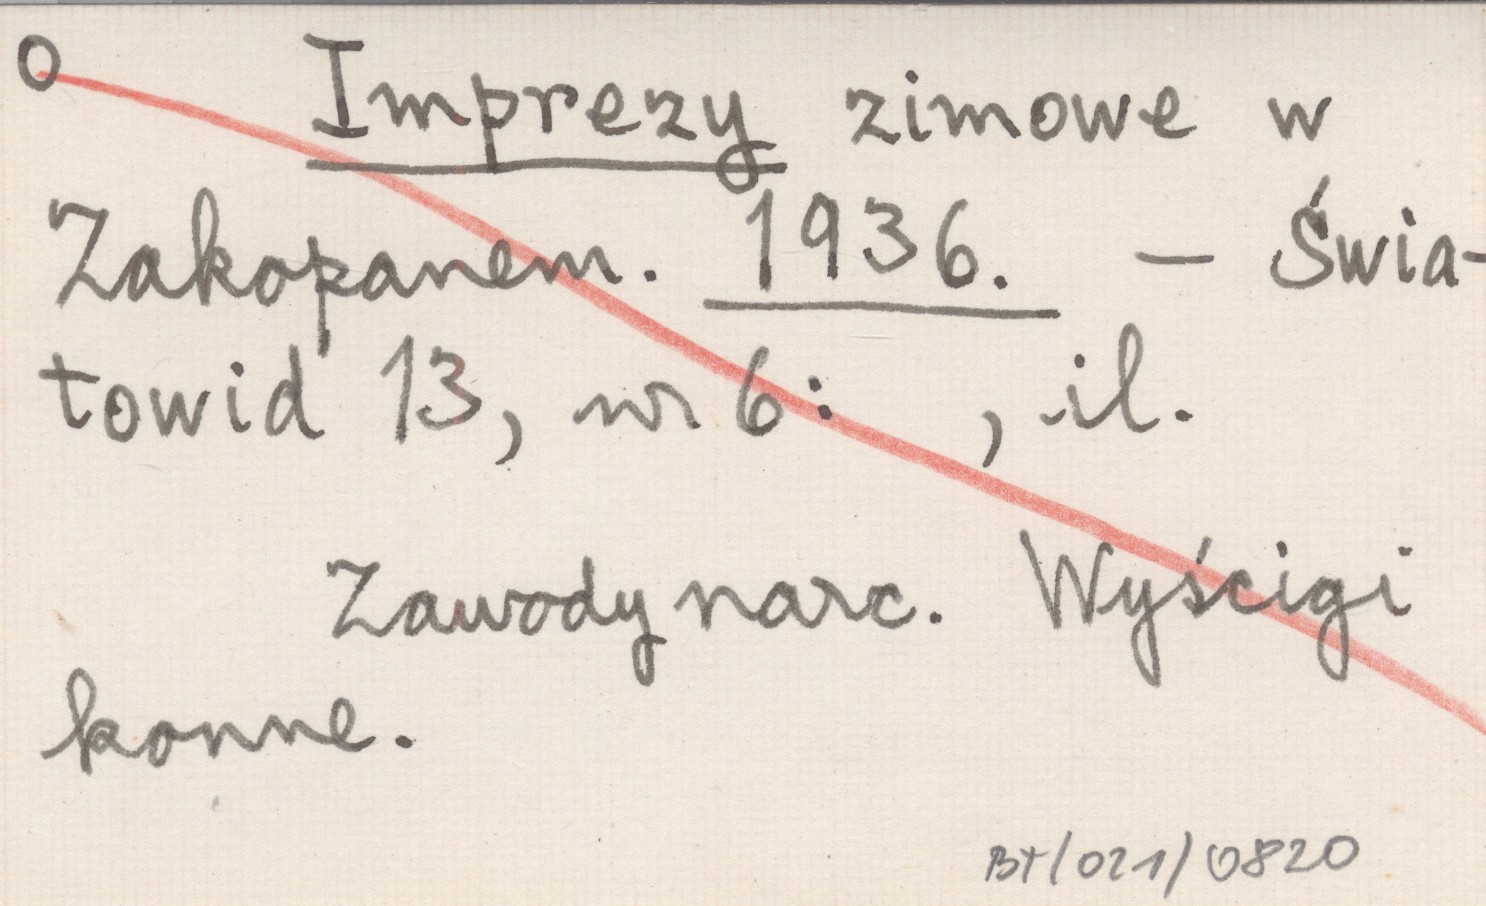 O Imprezy zimowe w
Zakopanem. 1936. – Świa-
towid 13, nr 6: , il.
Zawody narc. Wyścigi
konne.
BT/021/0820